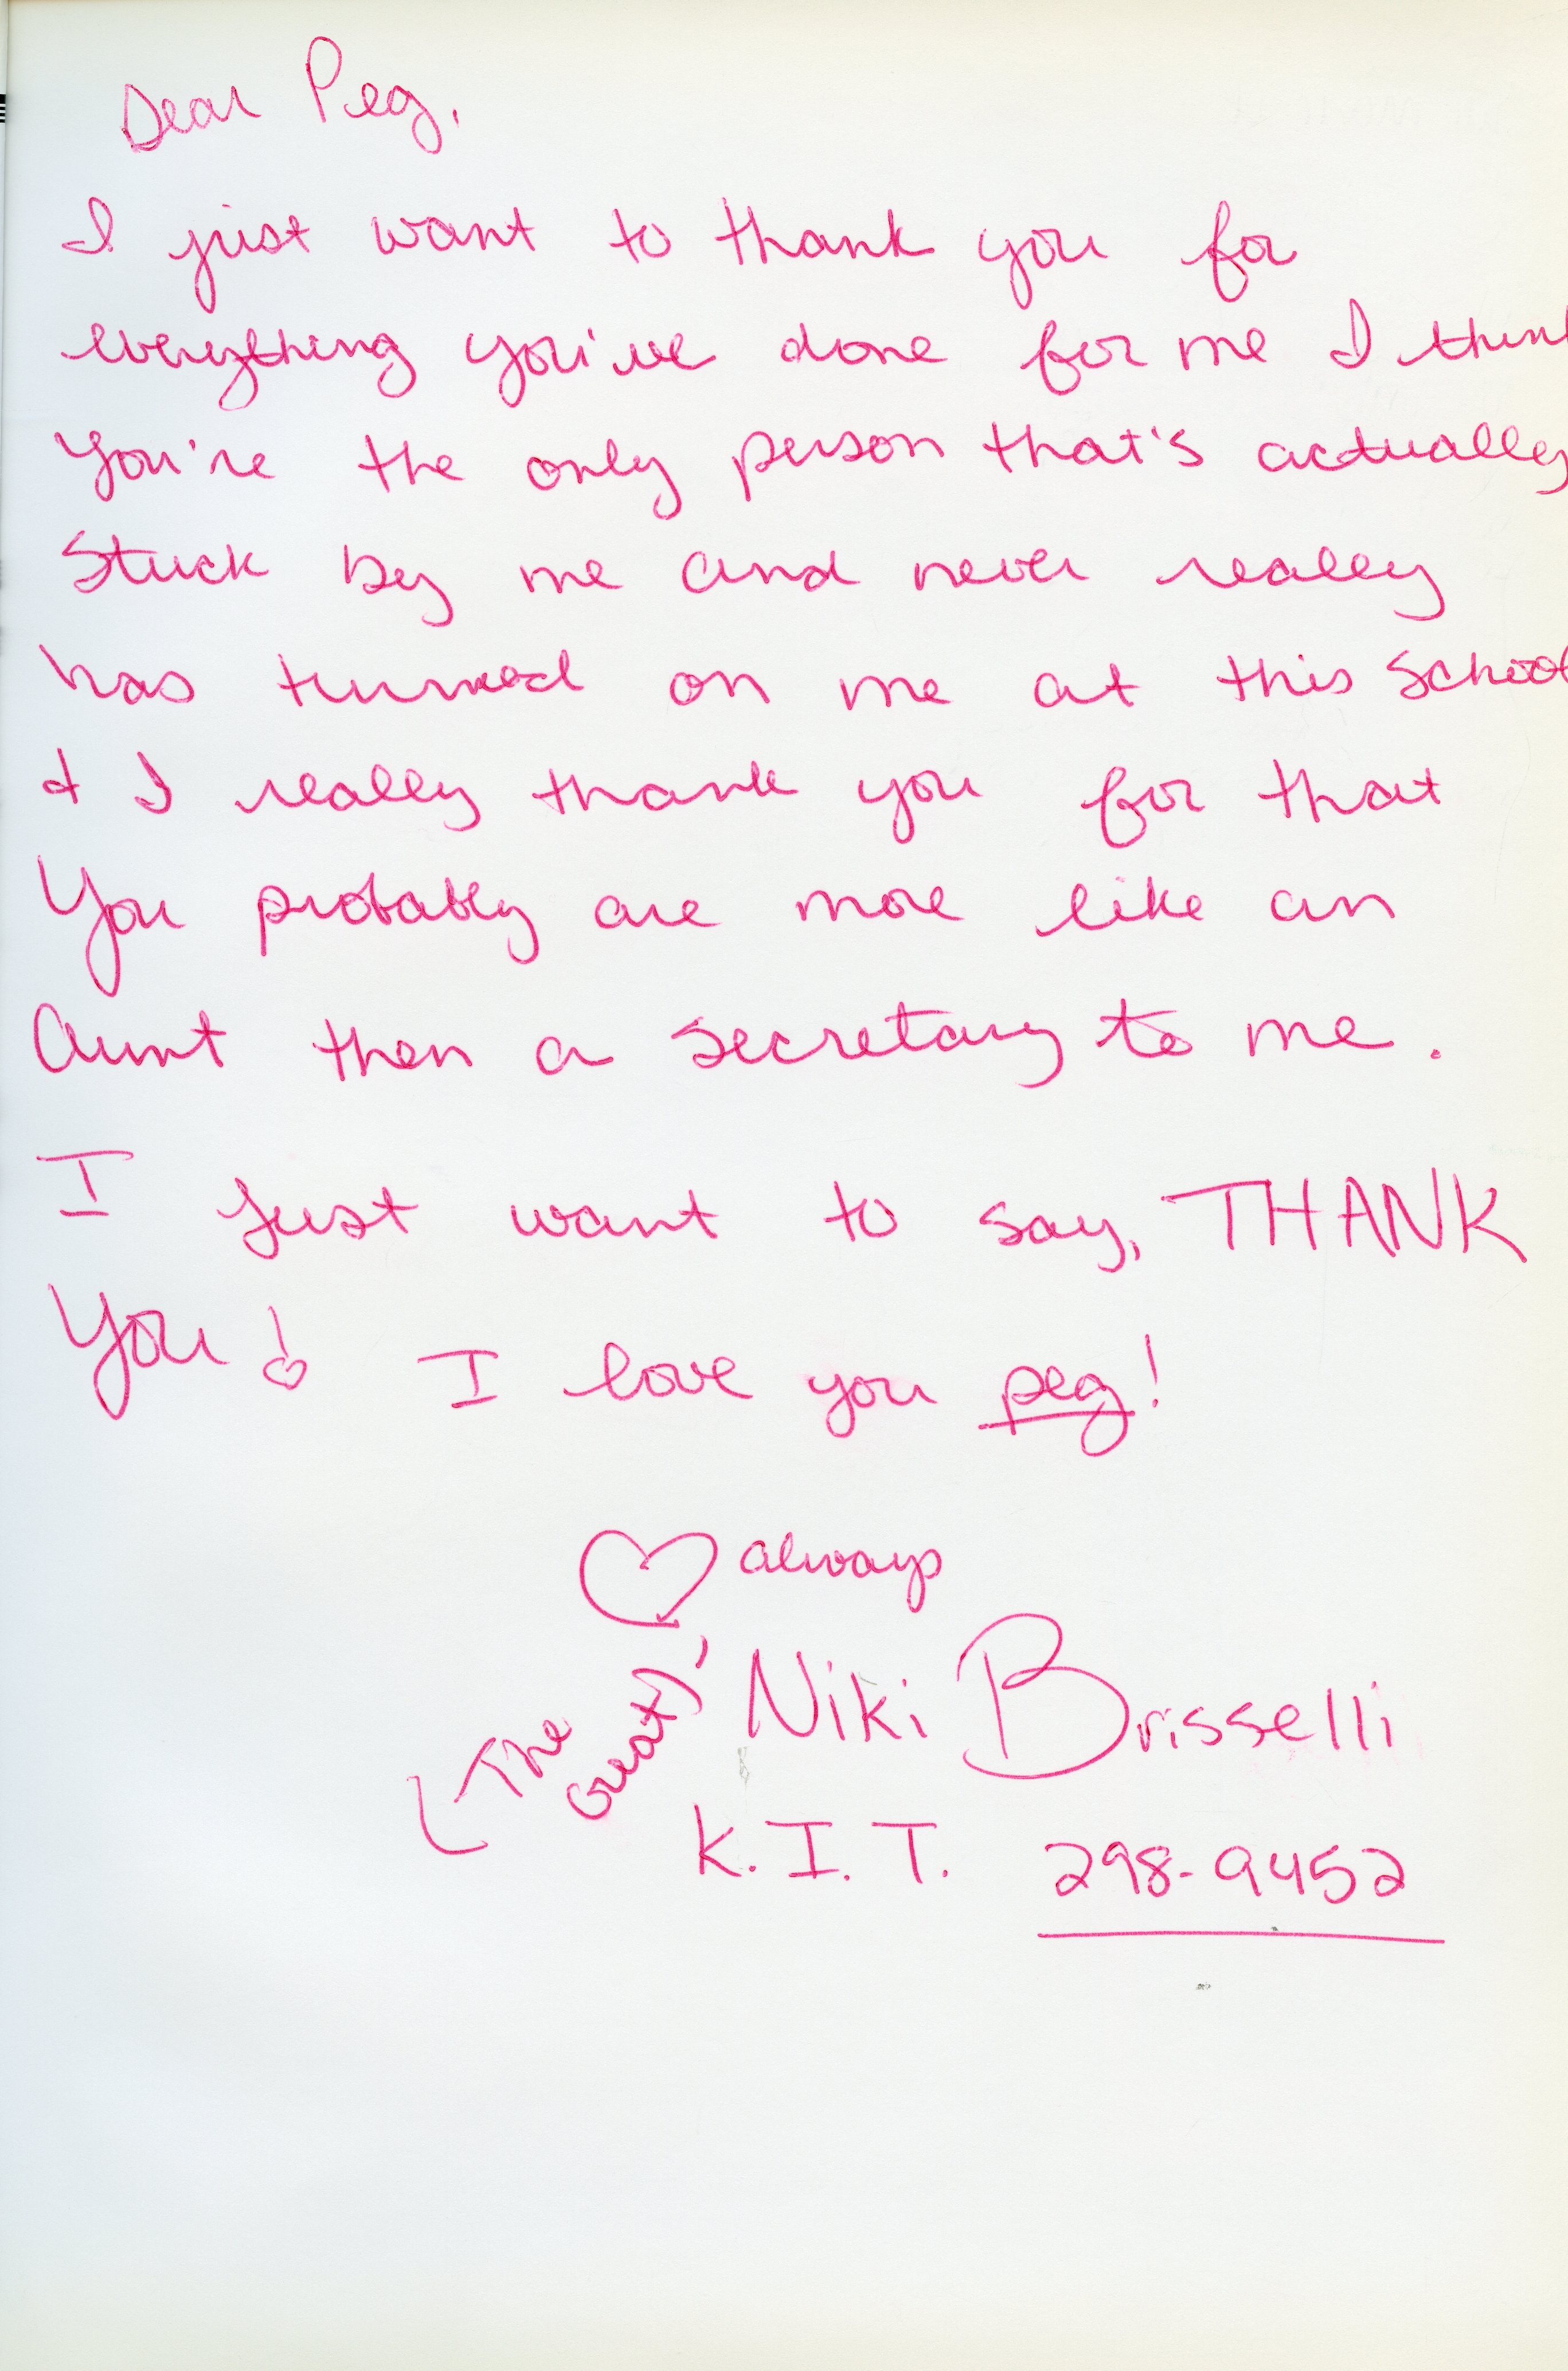 Dear Peg,
I just want to thank you for
everything you've done for me I think
you're the only person that's actually
stuck by me and never really
has turned on me at this school
& I really thank you for that
You probably are more like an
Aunt then a secretary to me.
I just want to say, THANK
You! I love you peg!
♡ always
(The Great) Niki Brisselli
K.I.T. 298-9452